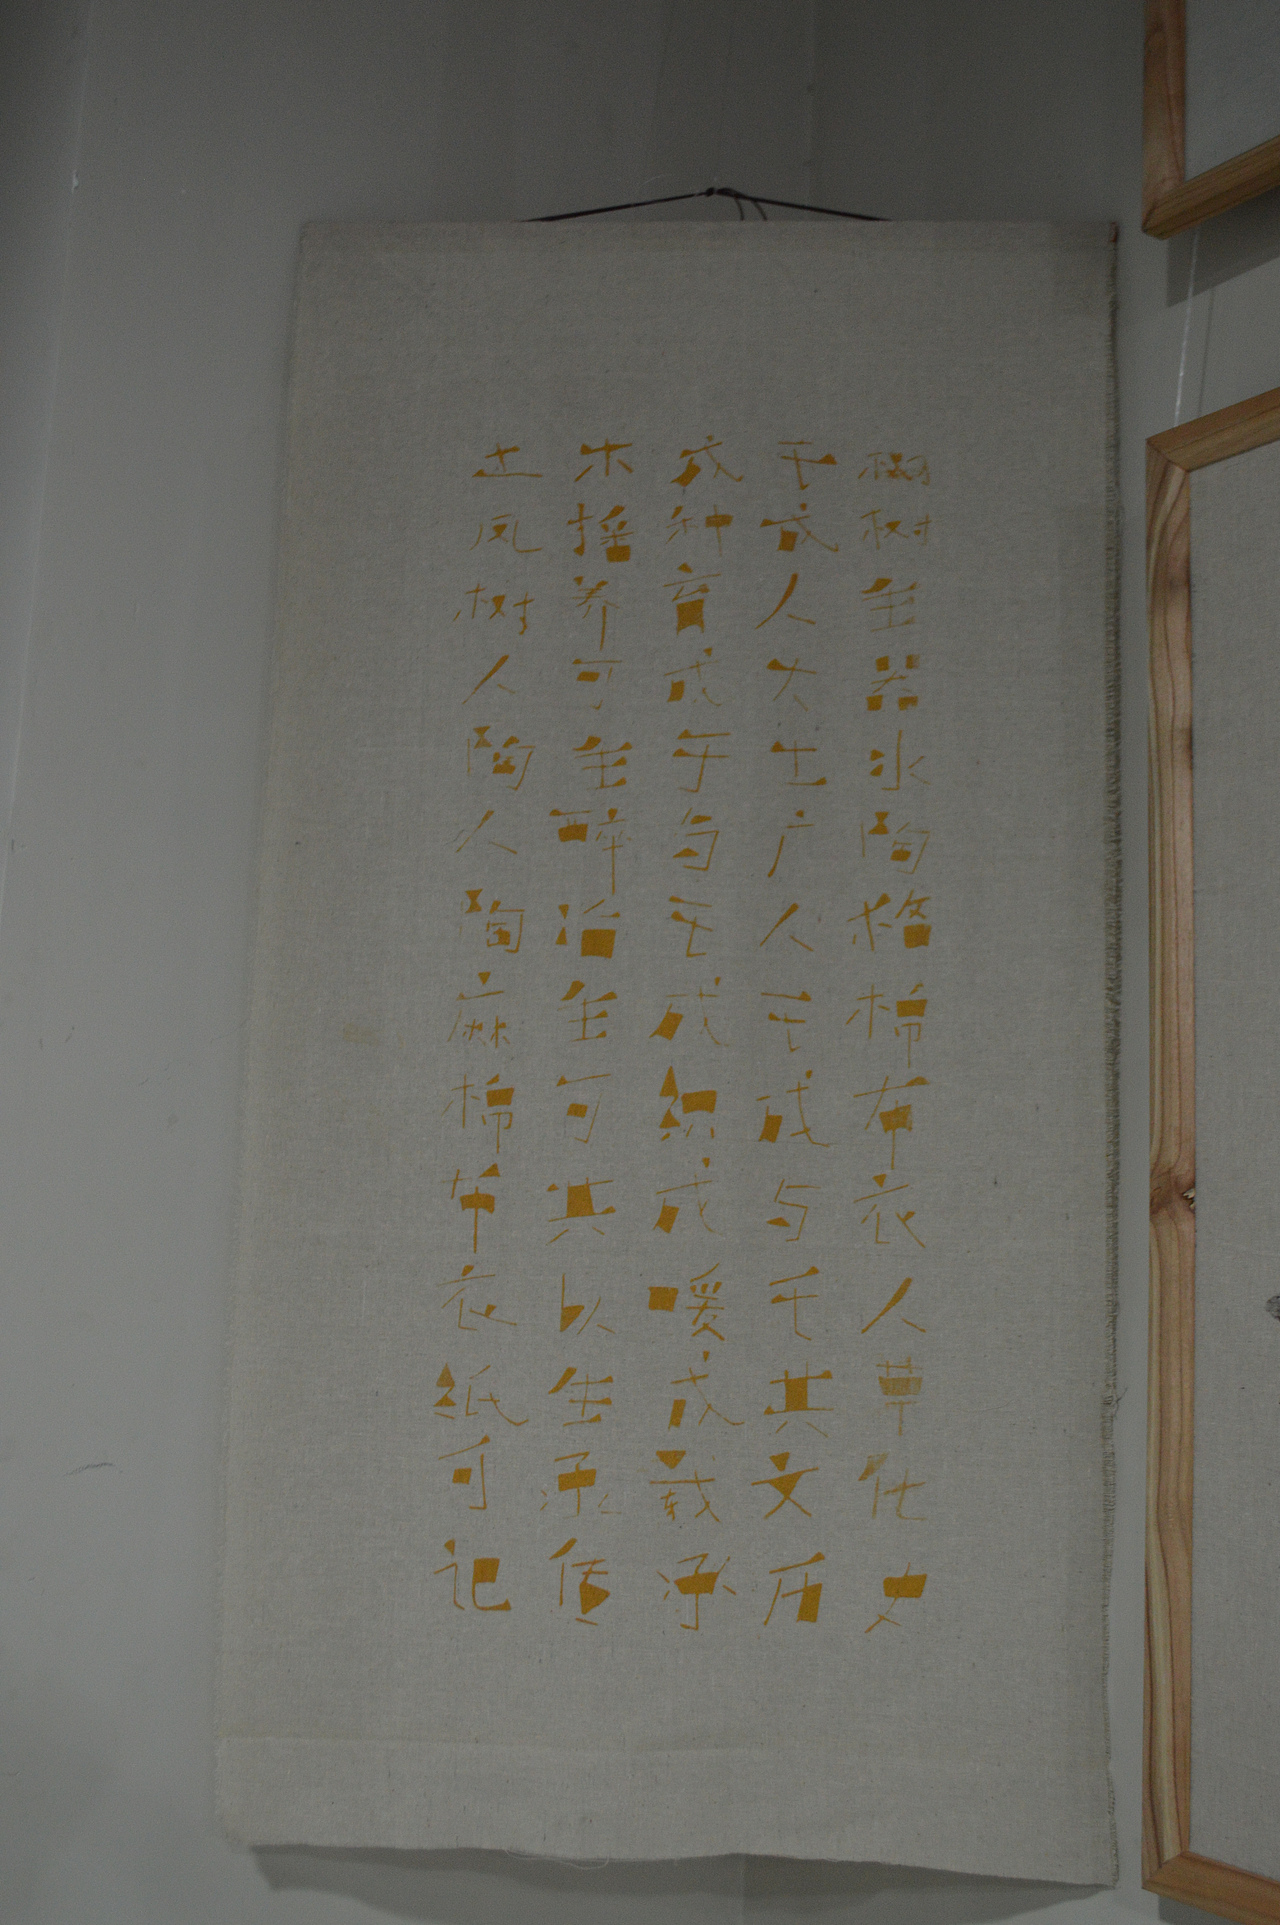 土木成于
风摇种成树
树养育人生
人可成大器
陶生于土水
人醉与广陶
陶冶毛人格
麻生成毛棉
棉可织成布
布共成与衣
衣以暖毛人
纸生成共草
可承载文化
记传承历史